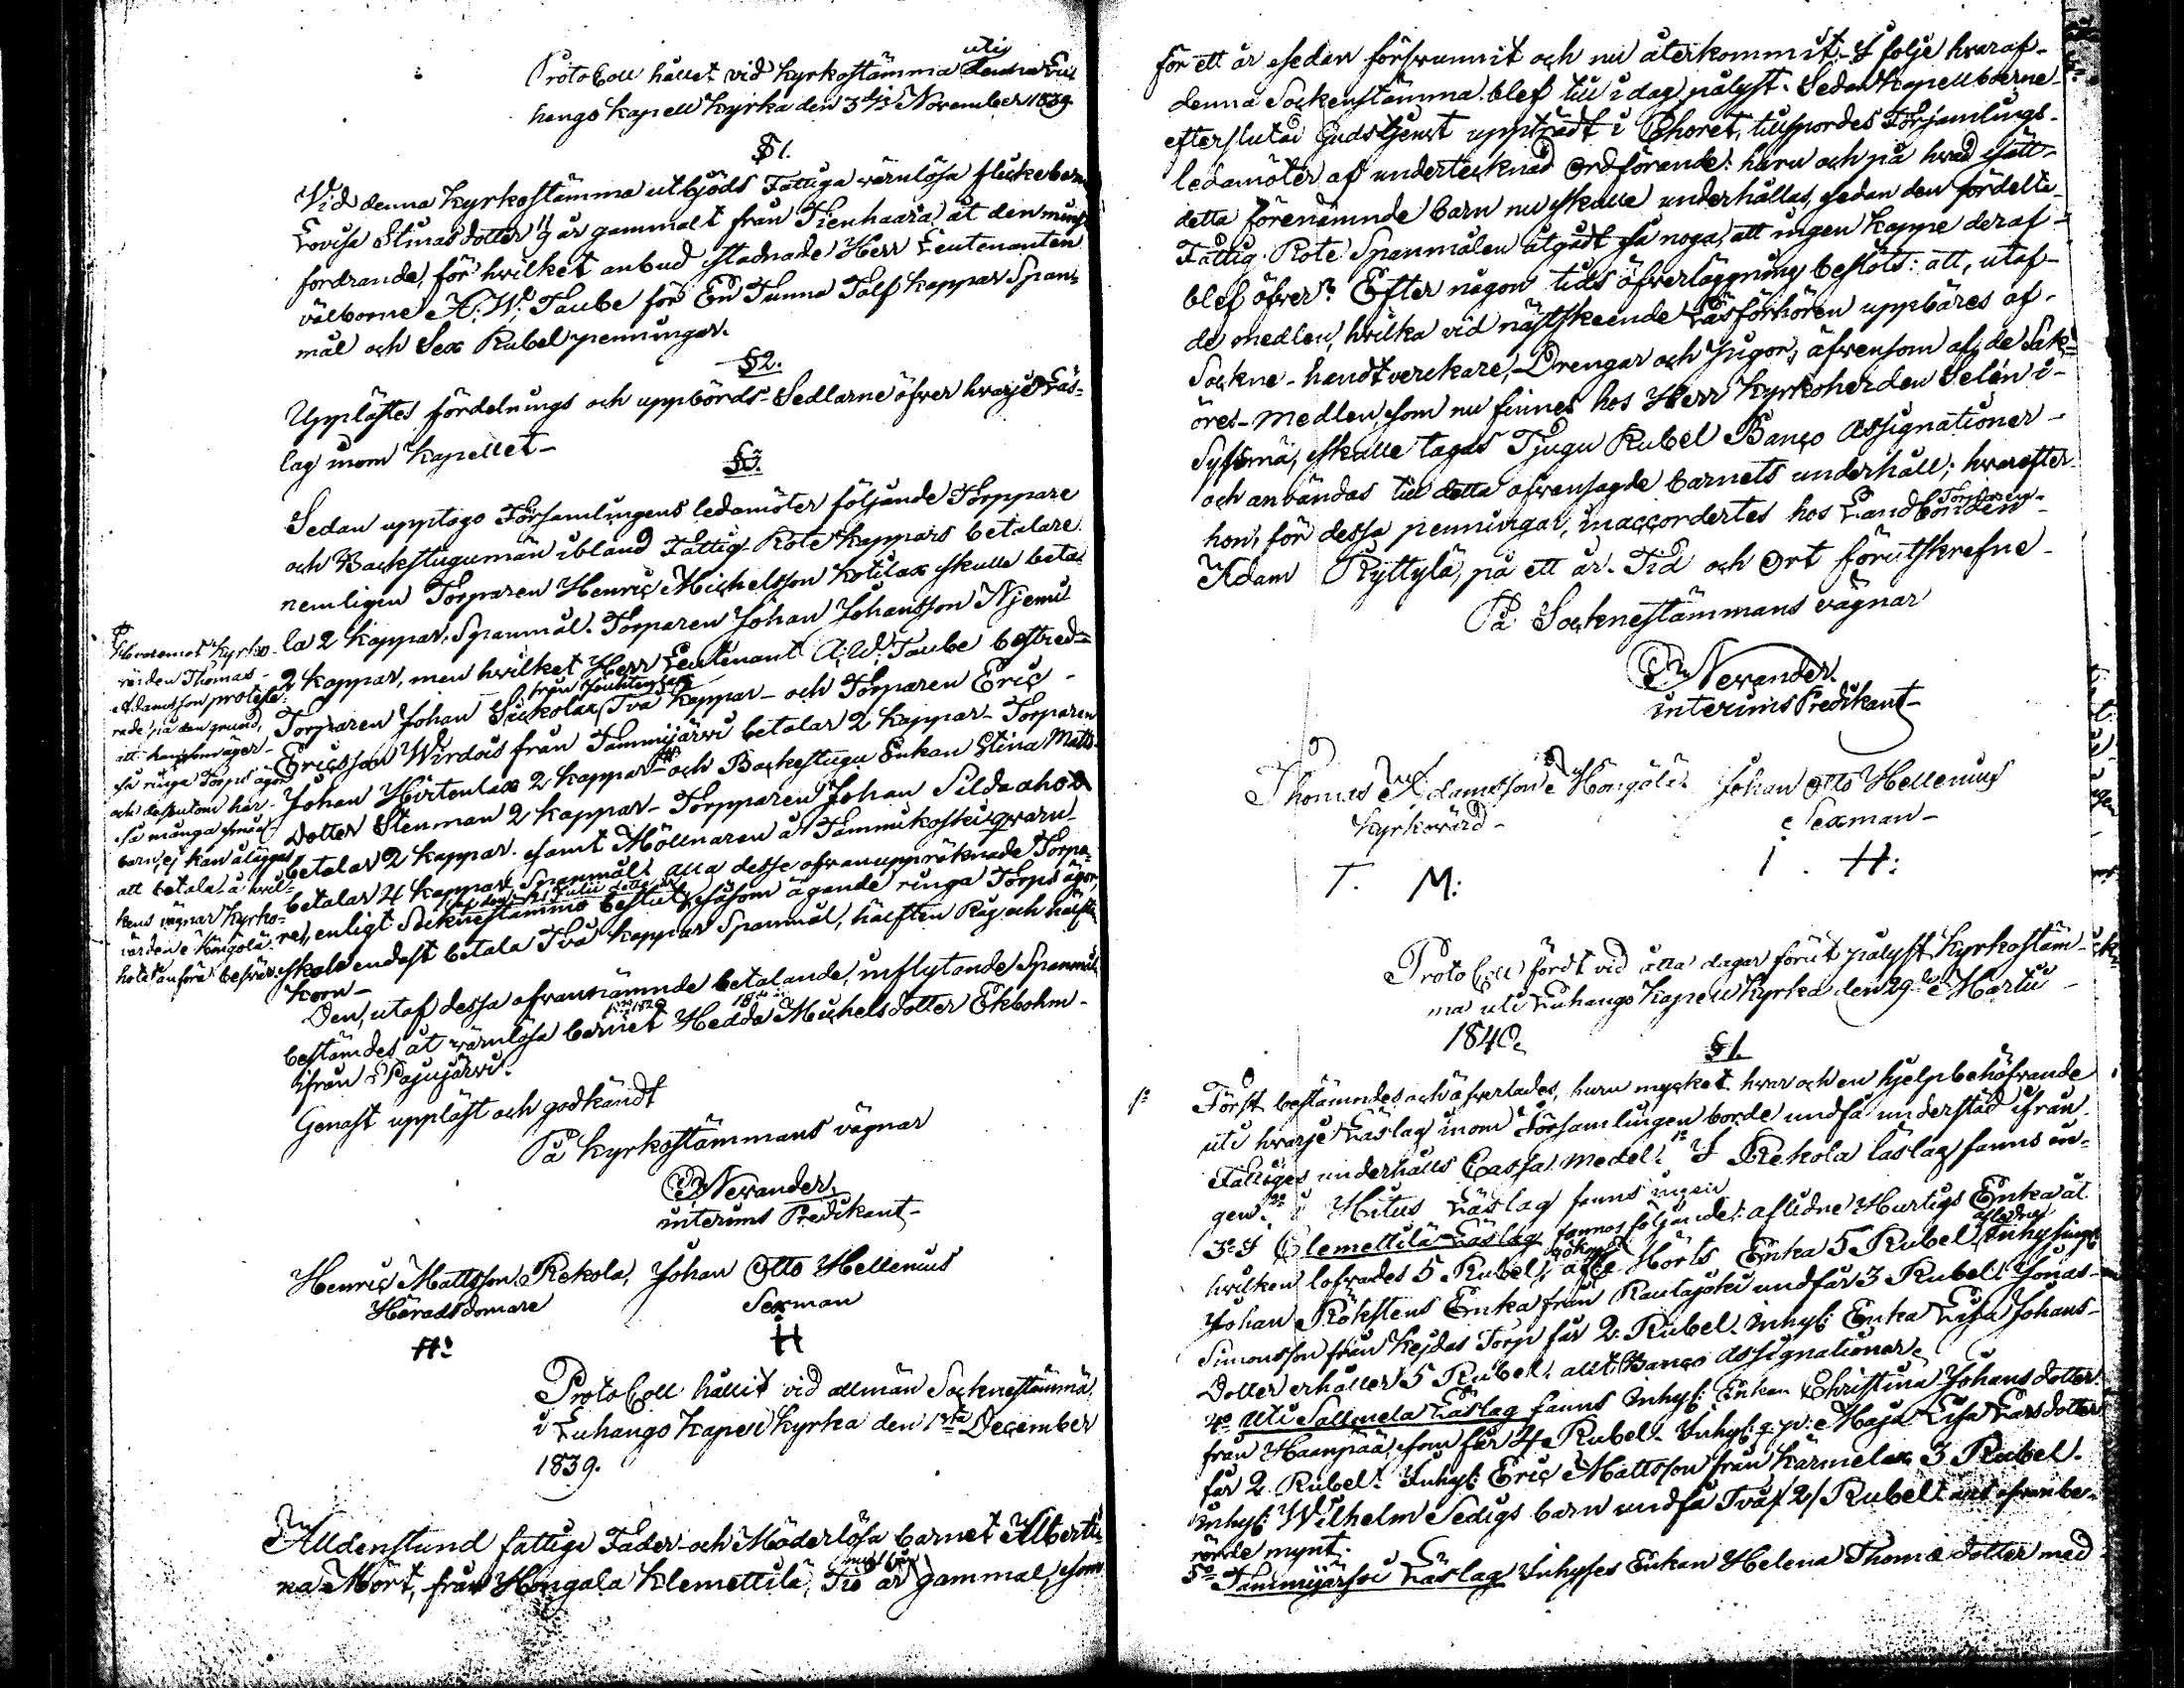 ProtoColl hållet vid Kyrkostämma utij
hango Kapell Kyrka den 3dje November 1839.
§ 1.
Vid denna Kyrkostämma utbjöds Fattiga värnlösa flickebarnet
Lovisa Stinasdotter 9 år gammalt från Tienhaara åt den minst
fordrande, för hvilket anbud stadnade Herr Lieutenanten
välborne A: W: Taube för En Tunna Tolf kappar Span-
mål och Sex Rubel penningar.
§ 2.
Upplästes fördelnings och uppbörds-Sedlarne öfver hvarje Läs-
lag inom Kapellet-
§ 3.
Sedan upptogo Församlingens ledamöter följande Torppare
och Backstugumän ibland Fattig-Rote Kappars betalare
nemligen Torparen Henric Michelsson Kotilax skulle beta-
la 2 kappar Spanmål. Torparen Johan Johansson Niemi
2 kappar, men hvilket Herr Leutenant A: W: Taube bestred=
Torparen Johan Två kappar- och Torparen Eric
Ericsson Wirdois från Tammijärwi betalar 2 kappar- Torparen
Johan Hirtenlax 2 kappar- och Backstugu Enkan Stina Matts-
Dotter Stenman 2 kappar- Torpparen Johan Sildaaho
betalar 2 kappar. samt Möllnaren å Tammikoski qvarn
betalar 4 kappar Spanmål. Alla desse ofvanuppräknade Torpa-
re, enligt Socknestämmo beslut, såsom ägande ringa Torps ägor,
skola endast betala Två kappar Spanmål, hälften Råg och hälften
Korn-
Hvaremot Kyrko-
värden Thomas
Adamsson proteste-
rade, på den grund,
att han som äger
så ringa Torps ägor
och dessutom har
så många små
barn, ej kan åläggas
att betala, å hvil-
kens vägnar Kyrko-
värden Hongola
hotat anföra besvär.
Den, utaf dessa ofvannämnde betalande, inflytande Spanmål
bestämdes åt värnlösa barnet Hedda Michelsdotter Ekbohm
ifrån Pajujärwi.
Genast uppläst och godkändt
På Kyrkostämmans vägnar
Nerander
interims Predikant-
Henric Mattsson Rekola, Johan Otto Hellenius
Häradsdomare Sexman
H
ProtoColl hållit vid allmän Socknestämma,
i Luhango Kapell Kyrka den 1sta December
1839.
Alldenstund fattige Fader- och Moderlösa barnet Alberti-
na Mört, från Hongala Klemettilä, Tio år gammal, som
för ett år sedan försvunnit och nu återkommit. I följe hvaraf
denna Sockenstämma blef till i dag pålyst. Sedan Kapellboerne
efter slutad Gudstjenst uppträdt i Choret, tillspordes Församlings-
ledamöter af undertecknad Ordförande: huru och på hvad sätt
detta förenämnde barn nu skulle underhållas, sedan den fördelte
Fattig Rote Spanmålen utgådt så noga, att ingen kappe deraf
blef öfver? Efter någon tids öfverläggning beslöts: att, utaf
de medlen, hvilka vid nästskeende Läsförhören uppbäres af
Sockne-handtverckare, Drengar och Pigor, äfvensom af de Sak=
öres-medlen, som nu finnes hos Herr Kyrkoherden Selén i
Sysmä, skulle tagas Tjugu Rubel Banco Assignationer
och användas till detta ofvansagde barnets underhåll; hvarefter
hon, för dessa penningar, inaccorderdes hos Landbonden
Torparen
Adam Ryttylä, på ett år. Tid och Ort förutskrefne
På Socknestämmans vägnar
Nerander
interims Predikant-
Thomas Adamsson Hongola Johan Otto Hellenius
Kyrkovärd- Sexman-
T. M: I. H:
ProtoColl fördt vid åtta dagar förut pålyst Kyrkostäm-
ma uti Luhango Kapell Kyrka den 29de Martii
1840.
§ 1.
1o Först bestämdes och öfverlades, huru mycket hvar och en hjelpbehöfvande
uti hvarje Läslag inom Församlingen borde undfå understöd ifrån
Fattiges underhålls Cassa medel. 1o I Rekola läslag fanns in-
gen. 2o i Hutus Läslag fanns ingen
3o I Clemettilä Läslag fannos följande: aflidne Hurtigs Enka åt
hvilken lofvades 5 Rubel, Mörts Enka 5 Rubel, aflidne Inhysinge
Johan Rökstens Enka från Rautajoki undfår 3 Rubel. Jonas
Simonsson från Kejdas Torp får 2 Rubel. Inhys: Enka Lisa Johans-
Dotter erhåller 5 Rubel. allt Banco Assignationer.
4o Uti Sallmela Läslag fanns Inhys: Enkan Christina Johansdotter
från Haanpää, som får 4 Rubel. Inhys: q.p. Maja Lisa Larsdotter
får 2 Rubel. Inhys: Eric Mattsson från Kärmelax 3 Rubel.
Inhys: Wilhelm Sedigs barn undfå Två / 2 / Rubel allt ofvanbe-
rörde mynt.
5o Tammijärwi Läslag Inhyses Enkan Helena Thomædotter med